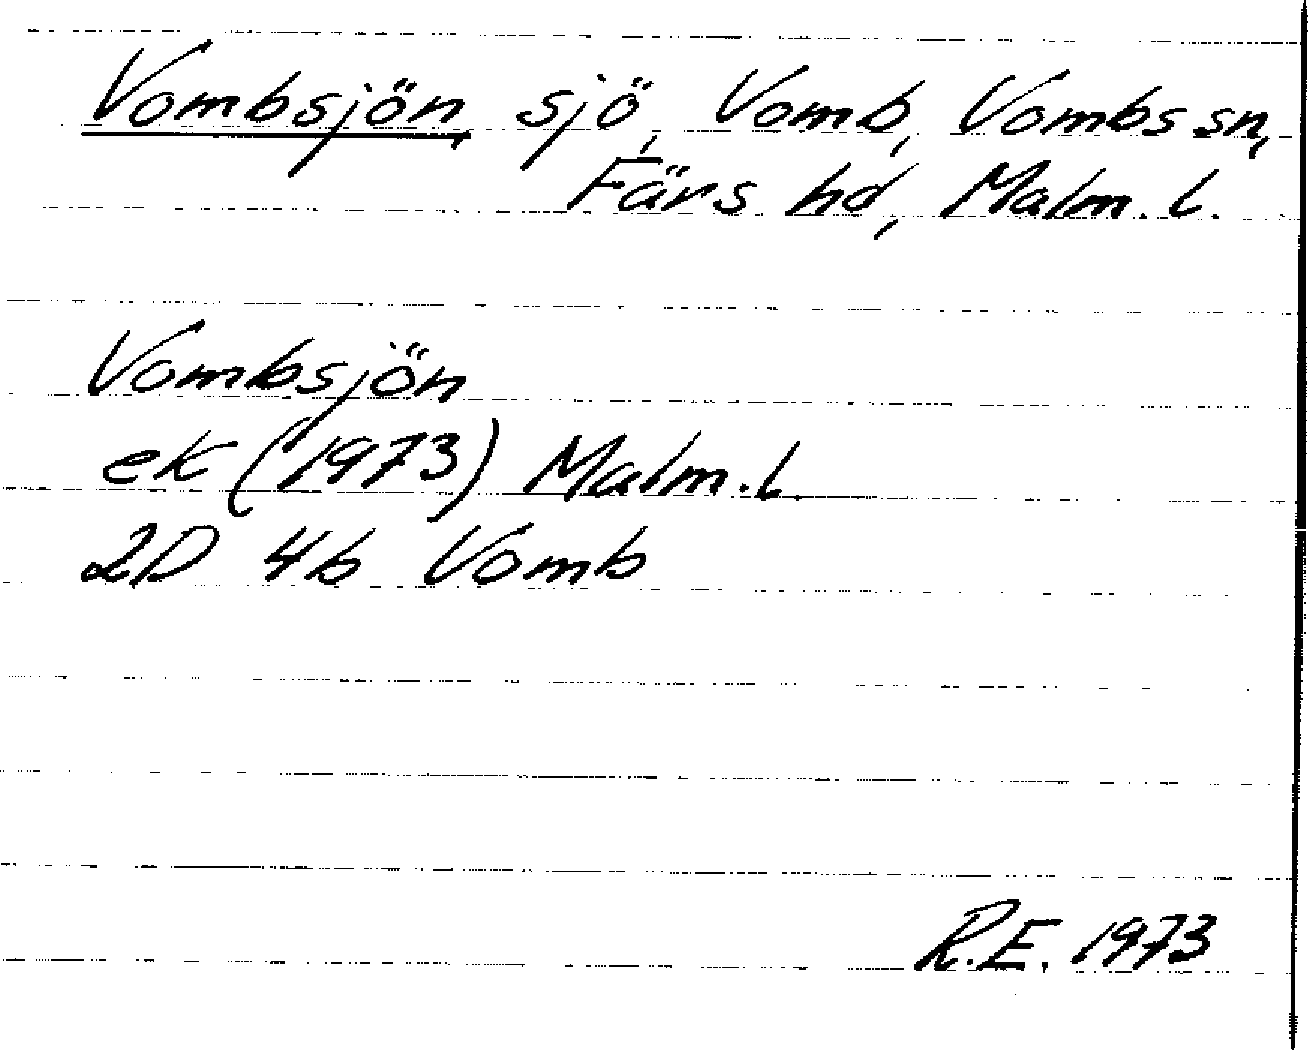 Vombsjön, sjö, Vomb, Vombs sn,
Färs hd, Malm. l.
Vombsjön
ek (1973) Malm. l.
2D 4b Vomb
R.E. 1973